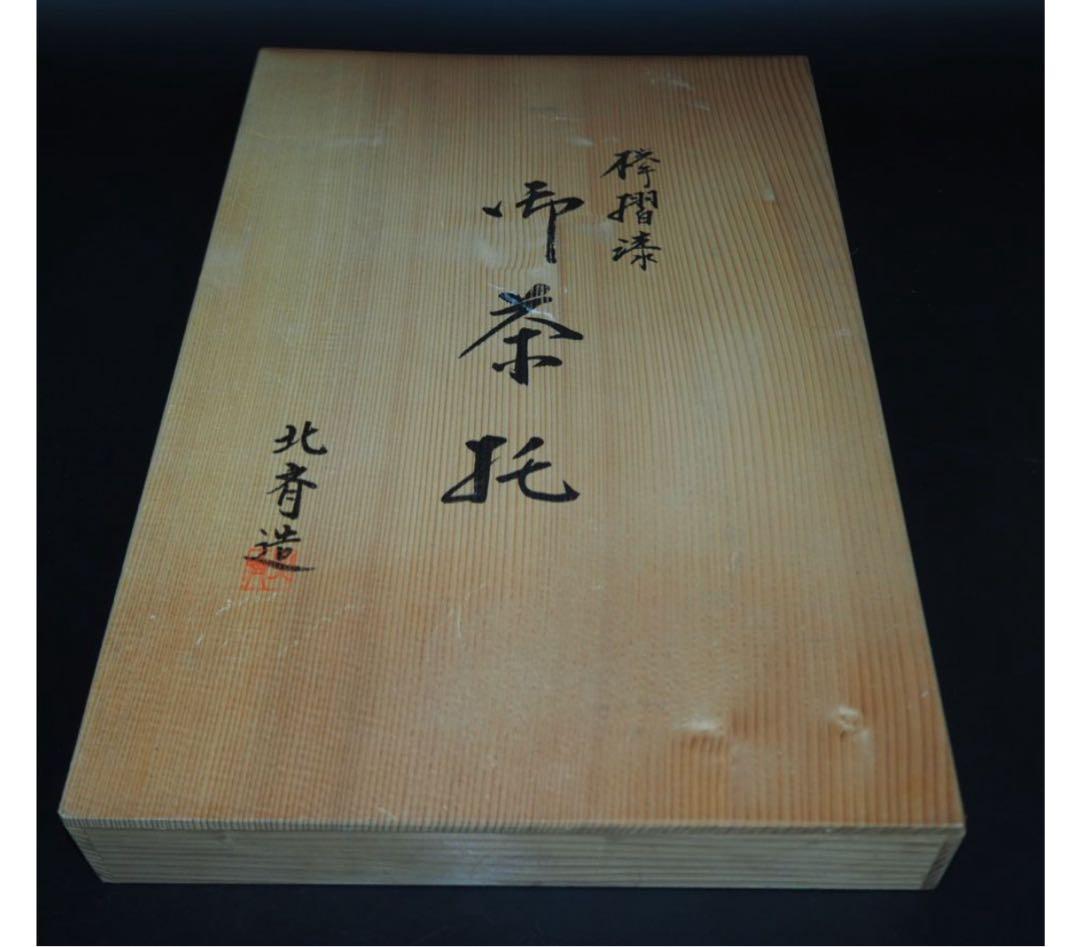 欅摺漆
御茶托
北斎造